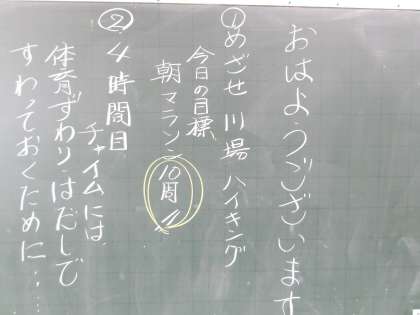 おはようございます
①めざせ川場ハイキング
今日の目標
朝マラソン10周〃
②4時間目
チャイムには
体育ずわり・はだしで
すわっておくために……